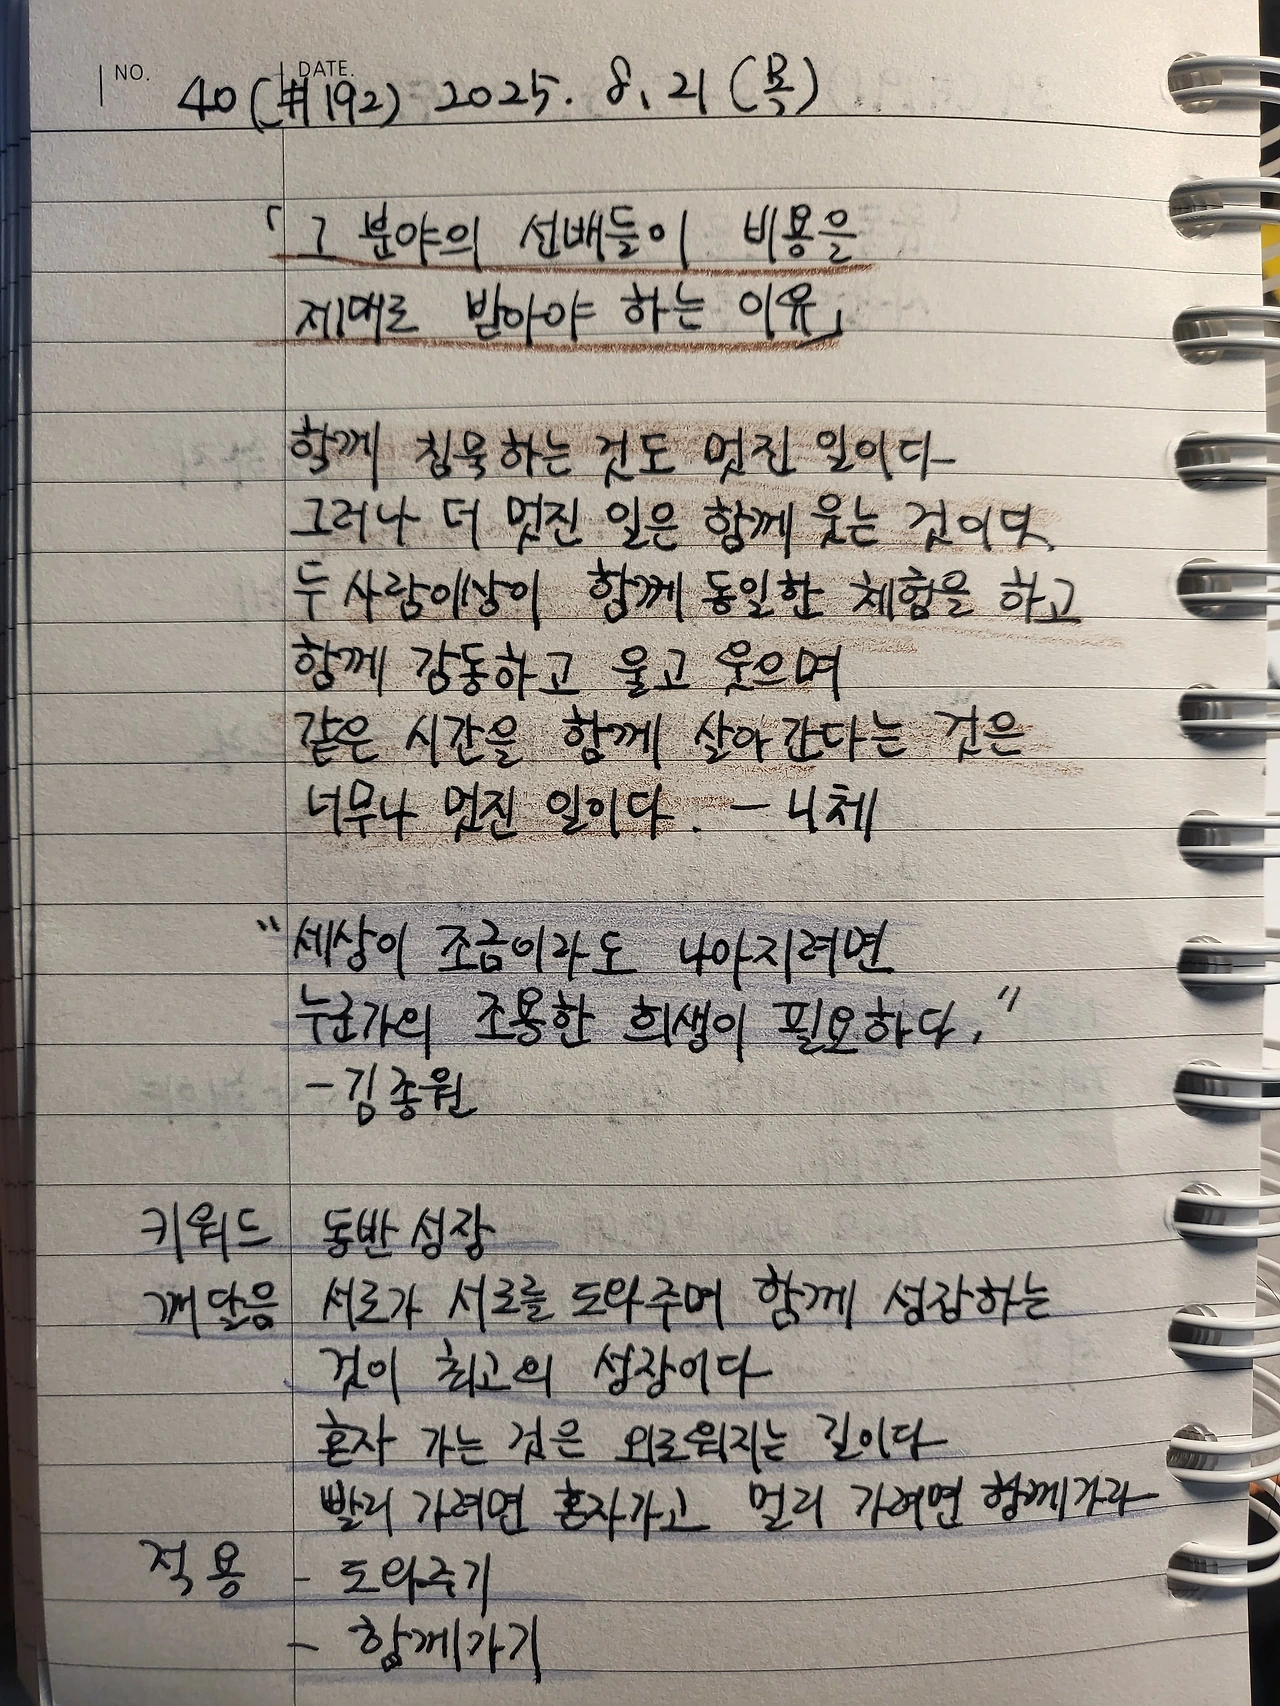 NO. DATE.
40(#192) 2025. 8. 21 (목)
「그 분야의 선배들이 비용을
제대로 받아야 하는 이유」
함께 침묵하는 것도 멋진 일이다
그러나 더 멋진 일은 함께 웃는 것이다.
두 사람이상이 함께 동일한 체험을 하고
함께 감동하고 울고 웃으며
같은 시간을 함께 살아간다는 것은
너무나 멋진 일이다. - 니체
"세상이 조금이라도 나아지려면
누군가의 조용한 희생이 필요하다."
- 김종원
키워드 동반성장
깨달음 서로가 서로를 도와주며 함께 성장하는
것이 최고의 성장이다
혼자 가는 것은 외로워지는 길이다
빨리 가려면 혼자가고 멀리 가려면 함께가라
적용 - 도와주기
- 함께가기